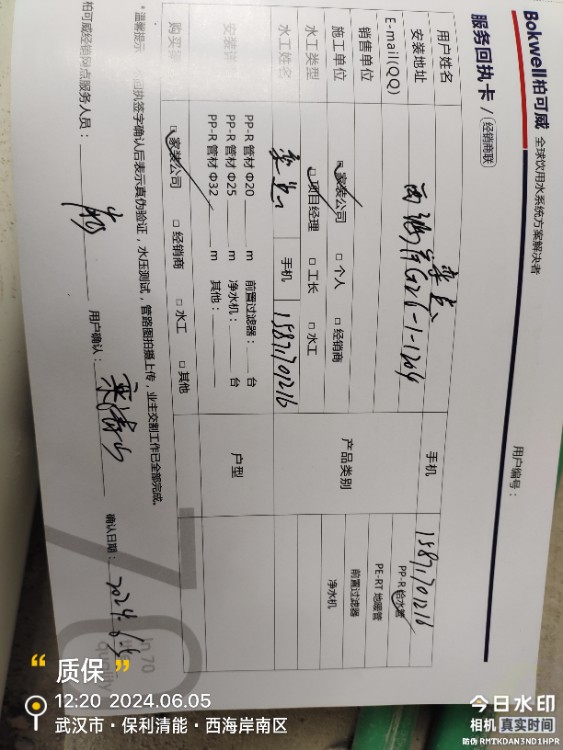 Bokwell柏可威 全球饮用水系统方案解决者
服务回执卡/(经销商联)
用户编号：
用户姓名 栾总 手机 15871701216
安装地址 西海岸G26-1-1204
E-mail(QQ)
销售单位
产品类别 PP-R 给水管
PE-RT 地暖管
前置过滤器
净水机
施工单位 ☑家装公司 □个人 □经销商
水工类型 ☑项目经理 □工长 □水工
水工姓名 栾总 手机 15871701216
PP-R 管材 Φ20 m 前置过滤器： 台
PP-R 管材 Φ25 m 净水机： 台
PP-R 管材 Φ32 m 其他：
户型
☑家装公司 □经销商 □水工 □其他
*温馨提示 回执签字确认后表示真伪验证，水压测试，管路图拍摄上传，业主交割工作已全部完成。
柏可威经销网点服务人员： 用户确认： 确认日期：2024.6.5
70
in 70
quality
“质保”
12:20 2024.06.05
武汉市·保利清能·西海岸南区
今日水印
相机 真实时间
防伪 RMTKDAN3ND1HPR